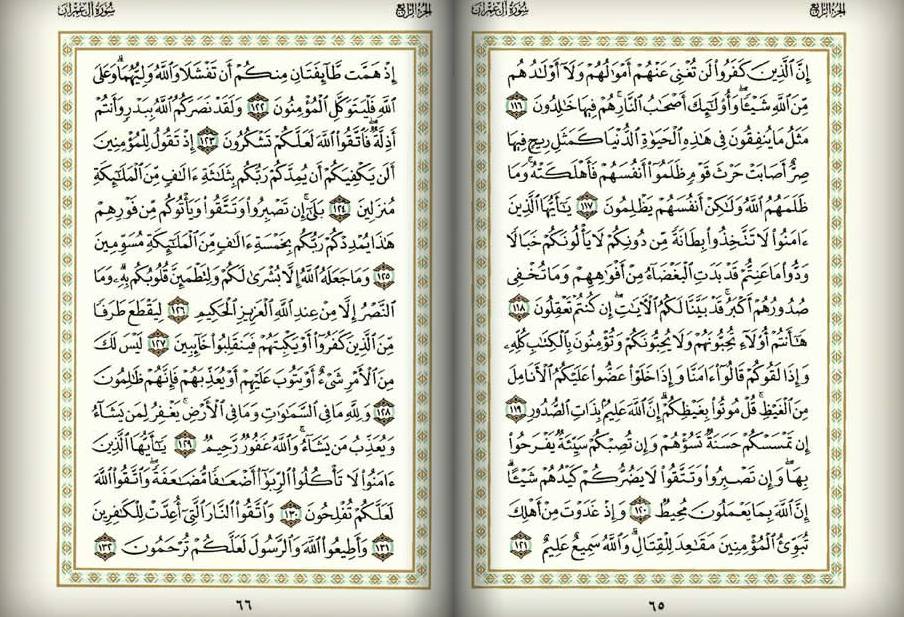 سُورَةُ آلِ عِمْرَانَ
الجُزْءُ الرَّابِعُ
إِنَّ ٱلَّذِينَ كَفَرُوا۟ لَن تُغْنِىَ عَنْهُمْ أَمْوَٰلُهُمْ وَلَآ أَوْلَٰدُهُم
مِّنَ ٱللَّهِ شَيْـًٔا ۖ وَأُو۟لَٰٓئِكَ أَصْحَٰبُ ٱلنَّارِ ۚ هُمْ فِيهَا خَٰلِدُونَ ١١٦
مَثَلُ مَا يُنفِقُونَ فِى هَٰذِهِ ٱلْحَيَوٰةِ ٱلدُّنْيَا كَمَثَلِ رِيحٍ فِيهَا
صِرٌّ أَصَابَتْ حَرْثَ قَوْمٍ ظَلَمُوٓا۟ أَنفُسَهُمْ فَأَهْلَكَتْهُ ۚ وَمَا
ظَلَمَهُمُ ٱللَّهُ وَلَٰكِنْ أَنفُسَهُمْ يَظْلِمُونَ ١١٧ يَٰٓأَيُّهَا ٱلَّذِينَ
ءَامَنُوا۟ لَا تَتَّخِذُوا۟ بِطَانَةً مِّن دُونِكُمْ لَا يَأْلُونَكُمْ خَبَالًا
وَدُّوا۟ مَا عَنِتُّمْ قَدْ بَدَتِ ٱلْبَغْضَآءُ مِنْ أَفْوَٰهِهِمْ وَمَا تُخْفِى
صُدُورُهُمْ أَكْبَرُ ۚ قَدْ بَيَّنَّا لَكُمُ ٱلْءَايَٰتِ ۖ إِن كُنتُمْ تَعْقِلُونَ ١١٨
هَٰٓأَنتُمْ أُو۟لَآءِ تُحِبُّونَهُمْ وَلَا يُحِبُّونَكُمْ وَتُؤْمِنُونَ بِٱلْكِتَٰبِ كُلِّهِۦ
وَإِذَا لَقُوكُمْ قَالُوٓا۟ ءَامَنَّا وَإِذَا خَلَوْا۟ عَضُّوا۟ عَلَيْكُمُ ٱلْأَنَامِلَ
مِنَ ٱلْغَيْظِ ۚ قُلْ مُوتُوا۟ بِغَيْظِكُمْ ۗ إِنَّ ٱللَّهَ عَلِيمٌۢ بِذَاتِ ٱلصُّدُورِ ١١٩
إِن تَمْسَسْكُمْ حَسَنَةٌ تَسُؤْهُمْ وَإِن تُصِبْكُمْ سَيِّئَةٌ يَفْرَحُوا۟
بِهَا ۖ وَإِن تَصْبِرُوا۟ وَتَتَّقُوا۟ لَا يَضُرُّكُمْ كَيْدُهُمْ شَيْـًٔا ۗ
إِنَّ ٱللَّهَ بِمَا يَعْمَلُونَ مُحِيطٌ ١٢٠ وَإِذْ غَدَوْتَ مِنْ أَهْلِكَ
تُبَوِّئُ ٱلْمُؤْمِنِينَ مَقَٰعِدَ لِلْقِتَالِ ۗ وَٱللَّهُ سَمِيعٌ عَلِيمٌ ١٢١
٦٥
سُورَةُ آلِ عِمْرَانَ
الجُزْءُ الرَّابِعُ
إِذْ هَمَّت طَّآئِفَتَانِ مِنكُمْ أَن تَفْشَلَا وَٱللَّهُ وَلِيُّهُمَا ۗ وَعَلَى
ٱللَّهِ فَلْيَتَوَكَّلِ ٱلْمُؤْمِنُونَ ١٢٢ وَلَقَدْ نَصَرَكُمُ ٱللَّهُ بِبَدْرٍ وَأَنتُمْ
أَذِلَّةٌ ۖ فَٱتَّقُوا۟ ٱللَّهَ لَعَلَّكُمْ تَشْكُرُونَ ١٢٣ إِذْ تَقُولُ لِلْمُؤْمِنِينَ
أَلَن يَكْفِيَكُمْ أَن يُمِدَّكُمْ رَبُّكُم بِثَلَٰثَةِ ءَالَٰفٍ مِّنَ ٱلْمَلَٰٓئِكَةِ
مُنزَلِينَ ١٢٤ بَلَىٰٓ ۚ إِن تَصْبِرُوا۟ وَتَتَّقُوا۟ وَيَأْتُوكُم مِّن فَوْرِهِمْ
هَٰذَا يُمْدِدْكُمْ رَبُّكُم بِخَمْسَةِ ءَالَٰفٍ مِّنَ ٱلْمَلَٰٓئِكَةِ مُسَوِّمِينَ
١٢٥ وَمَا جَعَلَهُ ٱللَّهُ إِلَّا بُشْرَىٰ لَكُمْ وَلِتَطْمَئِنَّ قُلُوبُكُم بِهِۦ ۗ وَمَا
ٱلنَّصْرُ إِلَّا مِنْ عِندِ ٱللَّهِ ٱلْعَزِيزِ ٱلْحَكِيمِ ١٢٦ لِيَقْطَعَ طَرَفًا
مِّنَ ٱلَّذِينَ كَفَرُوٓا۟ أَوْ يَكْبِتَهُمْ فَيَنقَلِبُوا۟ خَآئِبِينَ ١٢٧ لَيْسَ لَكَ
مِنَ ٱلْأَمْرِ شَىْءٌ أَوْ يَتُوبَ عَلَيْهِمْ أَوْ يُعَذِّبَهُمْ فَإِنَّهُمْ ظَٰلِمُونَ
١٢٨ وَلِلَّهِ مَا فِى ٱلسَّمَٰوَٰتِ وَمَا فِى ٱلْأَرْضِ ۚ يَغْفِرُ لِمَن يَشَآءُ
وَيُعَذِّبُ مَن يَشَآءُ ۚ وَٱللَّهُ غَفُورٌ رَّحِيمٌ ١٢٩ يَٰٓأَيُّهَا ٱلَّذِينَ
ءَامَنُوا۟ لَا تَأْكُلُوا۟ ٱلرِّبَوٰٓا۟ أَضْعَٰفًا مُّضَٰعَفَةً ۖ وَٱتَّقُوا۟ ٱللَّهَ
لَعَلَّكُمْ تُفْلِحُونَ ١٣٠ وَٱتَّقُوا۟ ٱلنَّارَ ٱلَّتِىٓ أُعِدَّتْ لِلْكَٰفِرِينَ
١٣١ وَأَطِيعُوا۟ ٱللَّهَ وَٱلرَّسُولَ لَعَلَّكُمْ تُرْحَمُونَ ١٣٢
٦٦